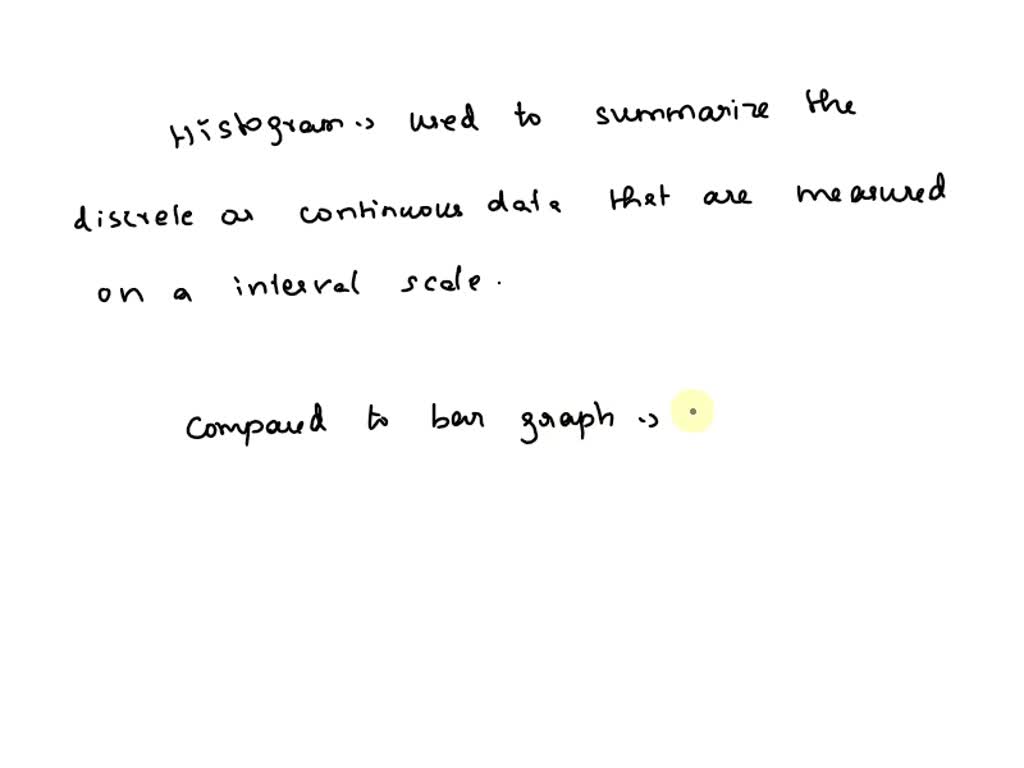 Histogram :→ used to summarize the
discrete or continuous data that are measured
on a interval scale.
Compared to bar graph :→